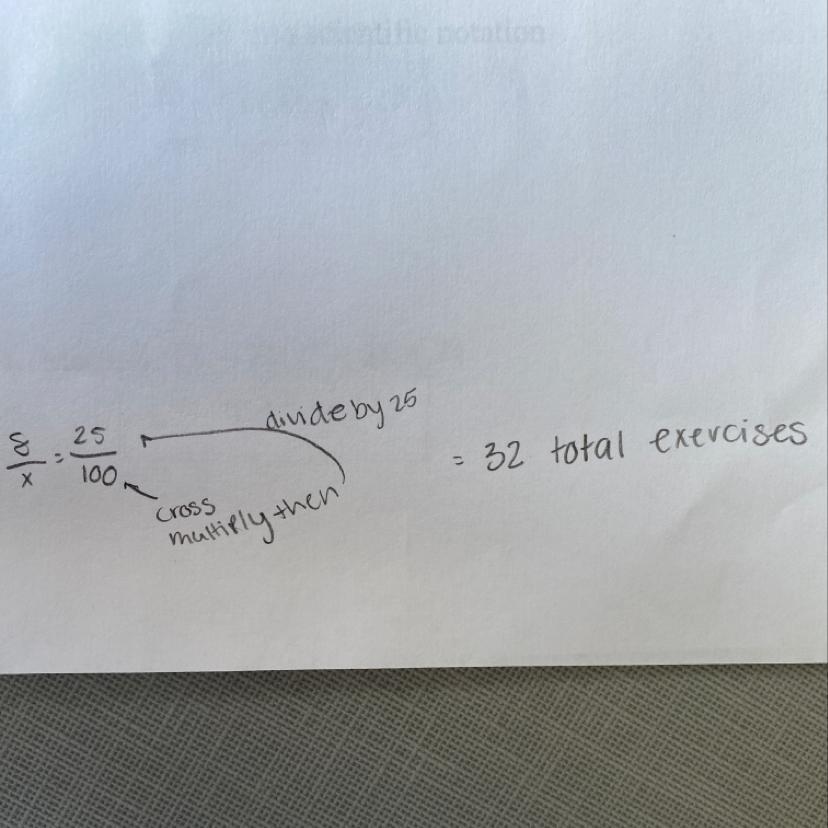 scientific notation
divide by 25
8/x = 25/100
= 32 total exercises
cross
multiply then